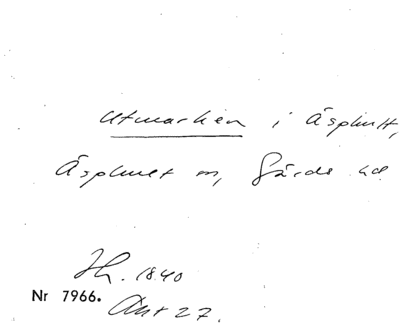 Utmarken i Äsphult,
Äsphult sn, Gärds hd.
Ih. 1840
Nr 7966.
Akt 27.